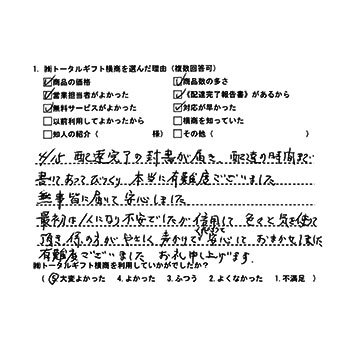 1. ㈱トータルギフト横商を選んだ理由（複数回答可）
☑商品の価格 ☑商品数の多さ
☑営業担当者がよかった ☑《配達完了報告書》があるから
☑無料サービスがよかった ☑対応が早かった
☐以前利用してよかったから ☐横商を知っていた
☐知人の紹介（ 様） ☐その他（ ）
4/15 配達完了の封書が届き、配達の時間まで
書いてあってびっくり、本当に有難度でございました
無事皆に届いて安心しました
最初は1人になり不安でしたが信用して 色々と気を使って
頂き 何の 安心して おまかせ
有難度でございました お礼申し上げます.
㈱トータルギフト横商を利用していかがでしたか？
（ ⑤大変よかった 4. よかった 3. ふつう 2. よくなかった 1. 不満足 ）